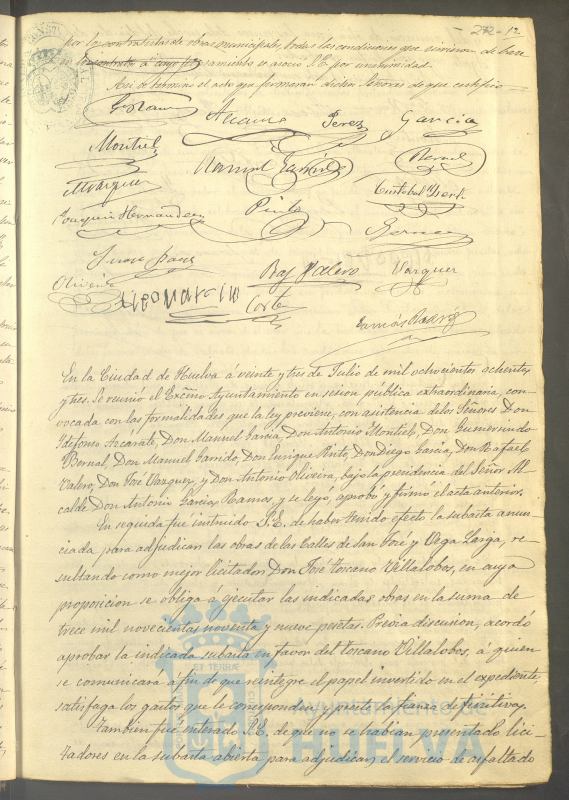 272-12
por los contratistas de obras municipales, todas las condiciones que sirvieron de base
al contrato á cuyo pensamiento se asoció S.E. por unanimidad.
Así se terminó el acto que firmaron dichos Señores de que certifico
Garcia
Perez
Montiel
Bernal
Marquez
Manuel Garrido
Joaquin Hernandez
Pinto
Oliveira
Raf Valero
Vazquez
Corte
En la Ciudad de Huelva á veinte y tres de Julio de mil ochocientos ochenta
y tres. Se reunió el Excmo Ayuntamiento en sesion pública extraordinaria, con-
vocada con las formalidades que la ley previene, con asistencia de los Señores Don
Ildefonso Azcarate, Don Manuel Garcia, Don Antonio Montiel, Don Gumersindo
Bernal, Don Manuel Garrido, Don Enrique Pinto, Don Diego Garcia, Don Rafael
Valero, Don José Vazquez, y Don Antonio Oliveira, bajo la presidencia del Señor Al-
calde Don Antonio Garcia Ramos, y se leyó, aprobó y firmó el acta anterior.
En seguida fue instruido S.E. de haber tenido efecto la subasta anun-
ciada para adjudicar las obras de las Calles de San José y Vega Larga, re-
sultando como mejor licitador Don José Toscano Villalobos, en cuya
proposicion se obliga á ejecutar las indicadas obras en la suma de
trece mil novecientas noventa y nueve pesetas. Previa discusion, acordó
aprobar la indicada subasta en favor del Toscano Villalobos, á quien
se comunicará á fin de que reintegre el papel invertido en el expediente,
satisfaga los gastos que le correspondan y preste la fianza definitiva.
Tambien fue enterado S.E. de que no se habian presentado lici-
tadores en la subasta abierta para adjudicar el servicio de asfaltado
Ayuntamiento de
HUELVA